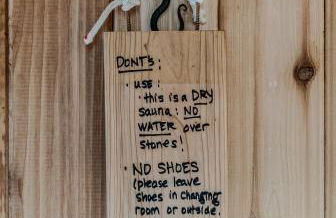 DONT's:
• USE:
• this is a DRY
sauna: NO
WATER over
stones!
• NO SHOES
(please leave
shoes in changing
room or outside.